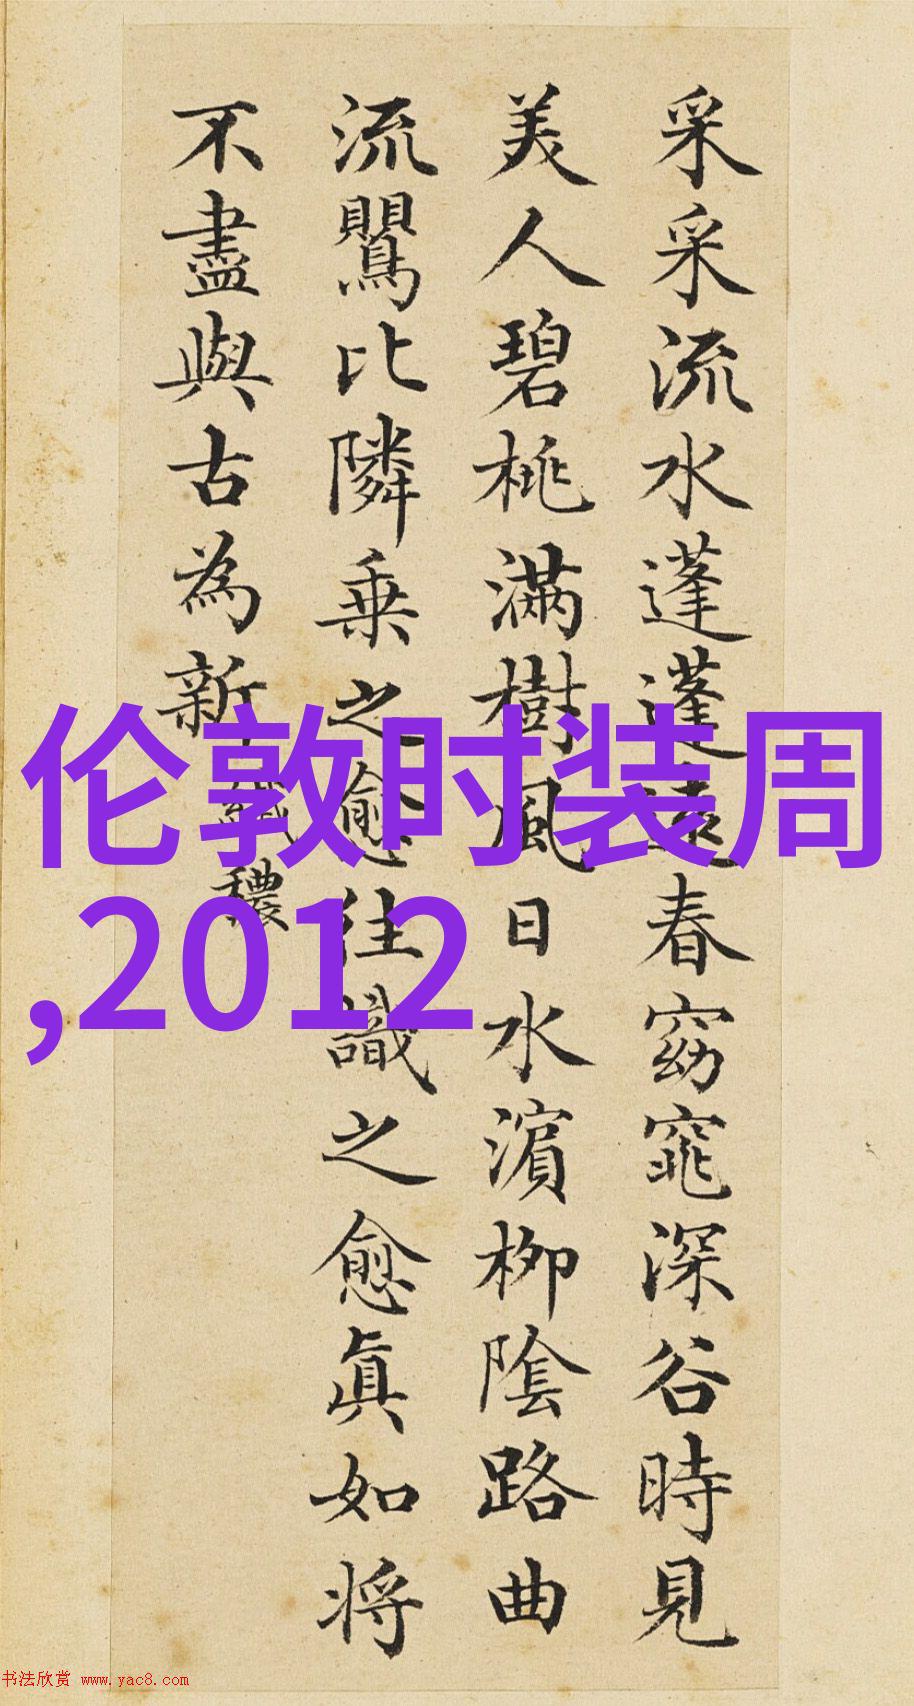 采采流水蓬蓬遠春窈窕深谷時見
美人碧桃滿樹風日水濵柳陰路曲
流鸎比隣乗之愈往識之愈眞如将
不盡與古為新
纖穠
伦敦时装周
,2012
书法欣赏 www.yac8.com